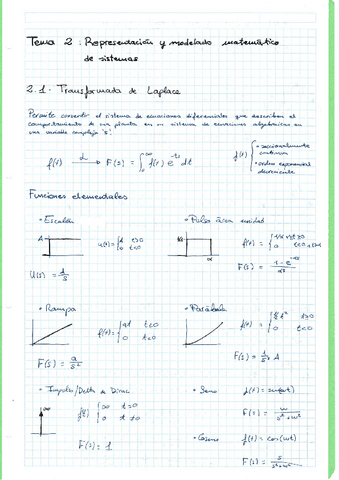 Tema 2: Representación y modelado matemático
de sistemas
2.1. Transformada de Laplace
Permite convertir el sistema de ecuaciones diferenciales que describen el
comportamiento de una planta en un sistema de ecuaciones algebraicas en
una variable compleja 's'.
f(t) → F(s) = ∫₀^∞ f(t) e^-ts dt
f(t) { • seccionalmente
continua
• orden exponencial
decreciente
Funciones elementales
• Escalón
• Pulso área unidad
A
u(t) = { 1 t≥0
0 t<0
U(s) = 1/s
1/α
α
F(s) = 1 - e^-αs / αs
• Rampa
• Parábola
f(t) = { at t≥0
0 t<0
F(s) = a/s²
t≥0
0 t<0
F(s) = 1/s³ A
• Impulso/Delta de Dirac
∞
{ ∞ t=0
0 t≠0
F(s) = 1
• Seno
f(t) = sen(ωt)
F(s) = ω / s²+ω²
• Coseno
f(t) = cos(ωt)
F(s) = s / s²+ω²